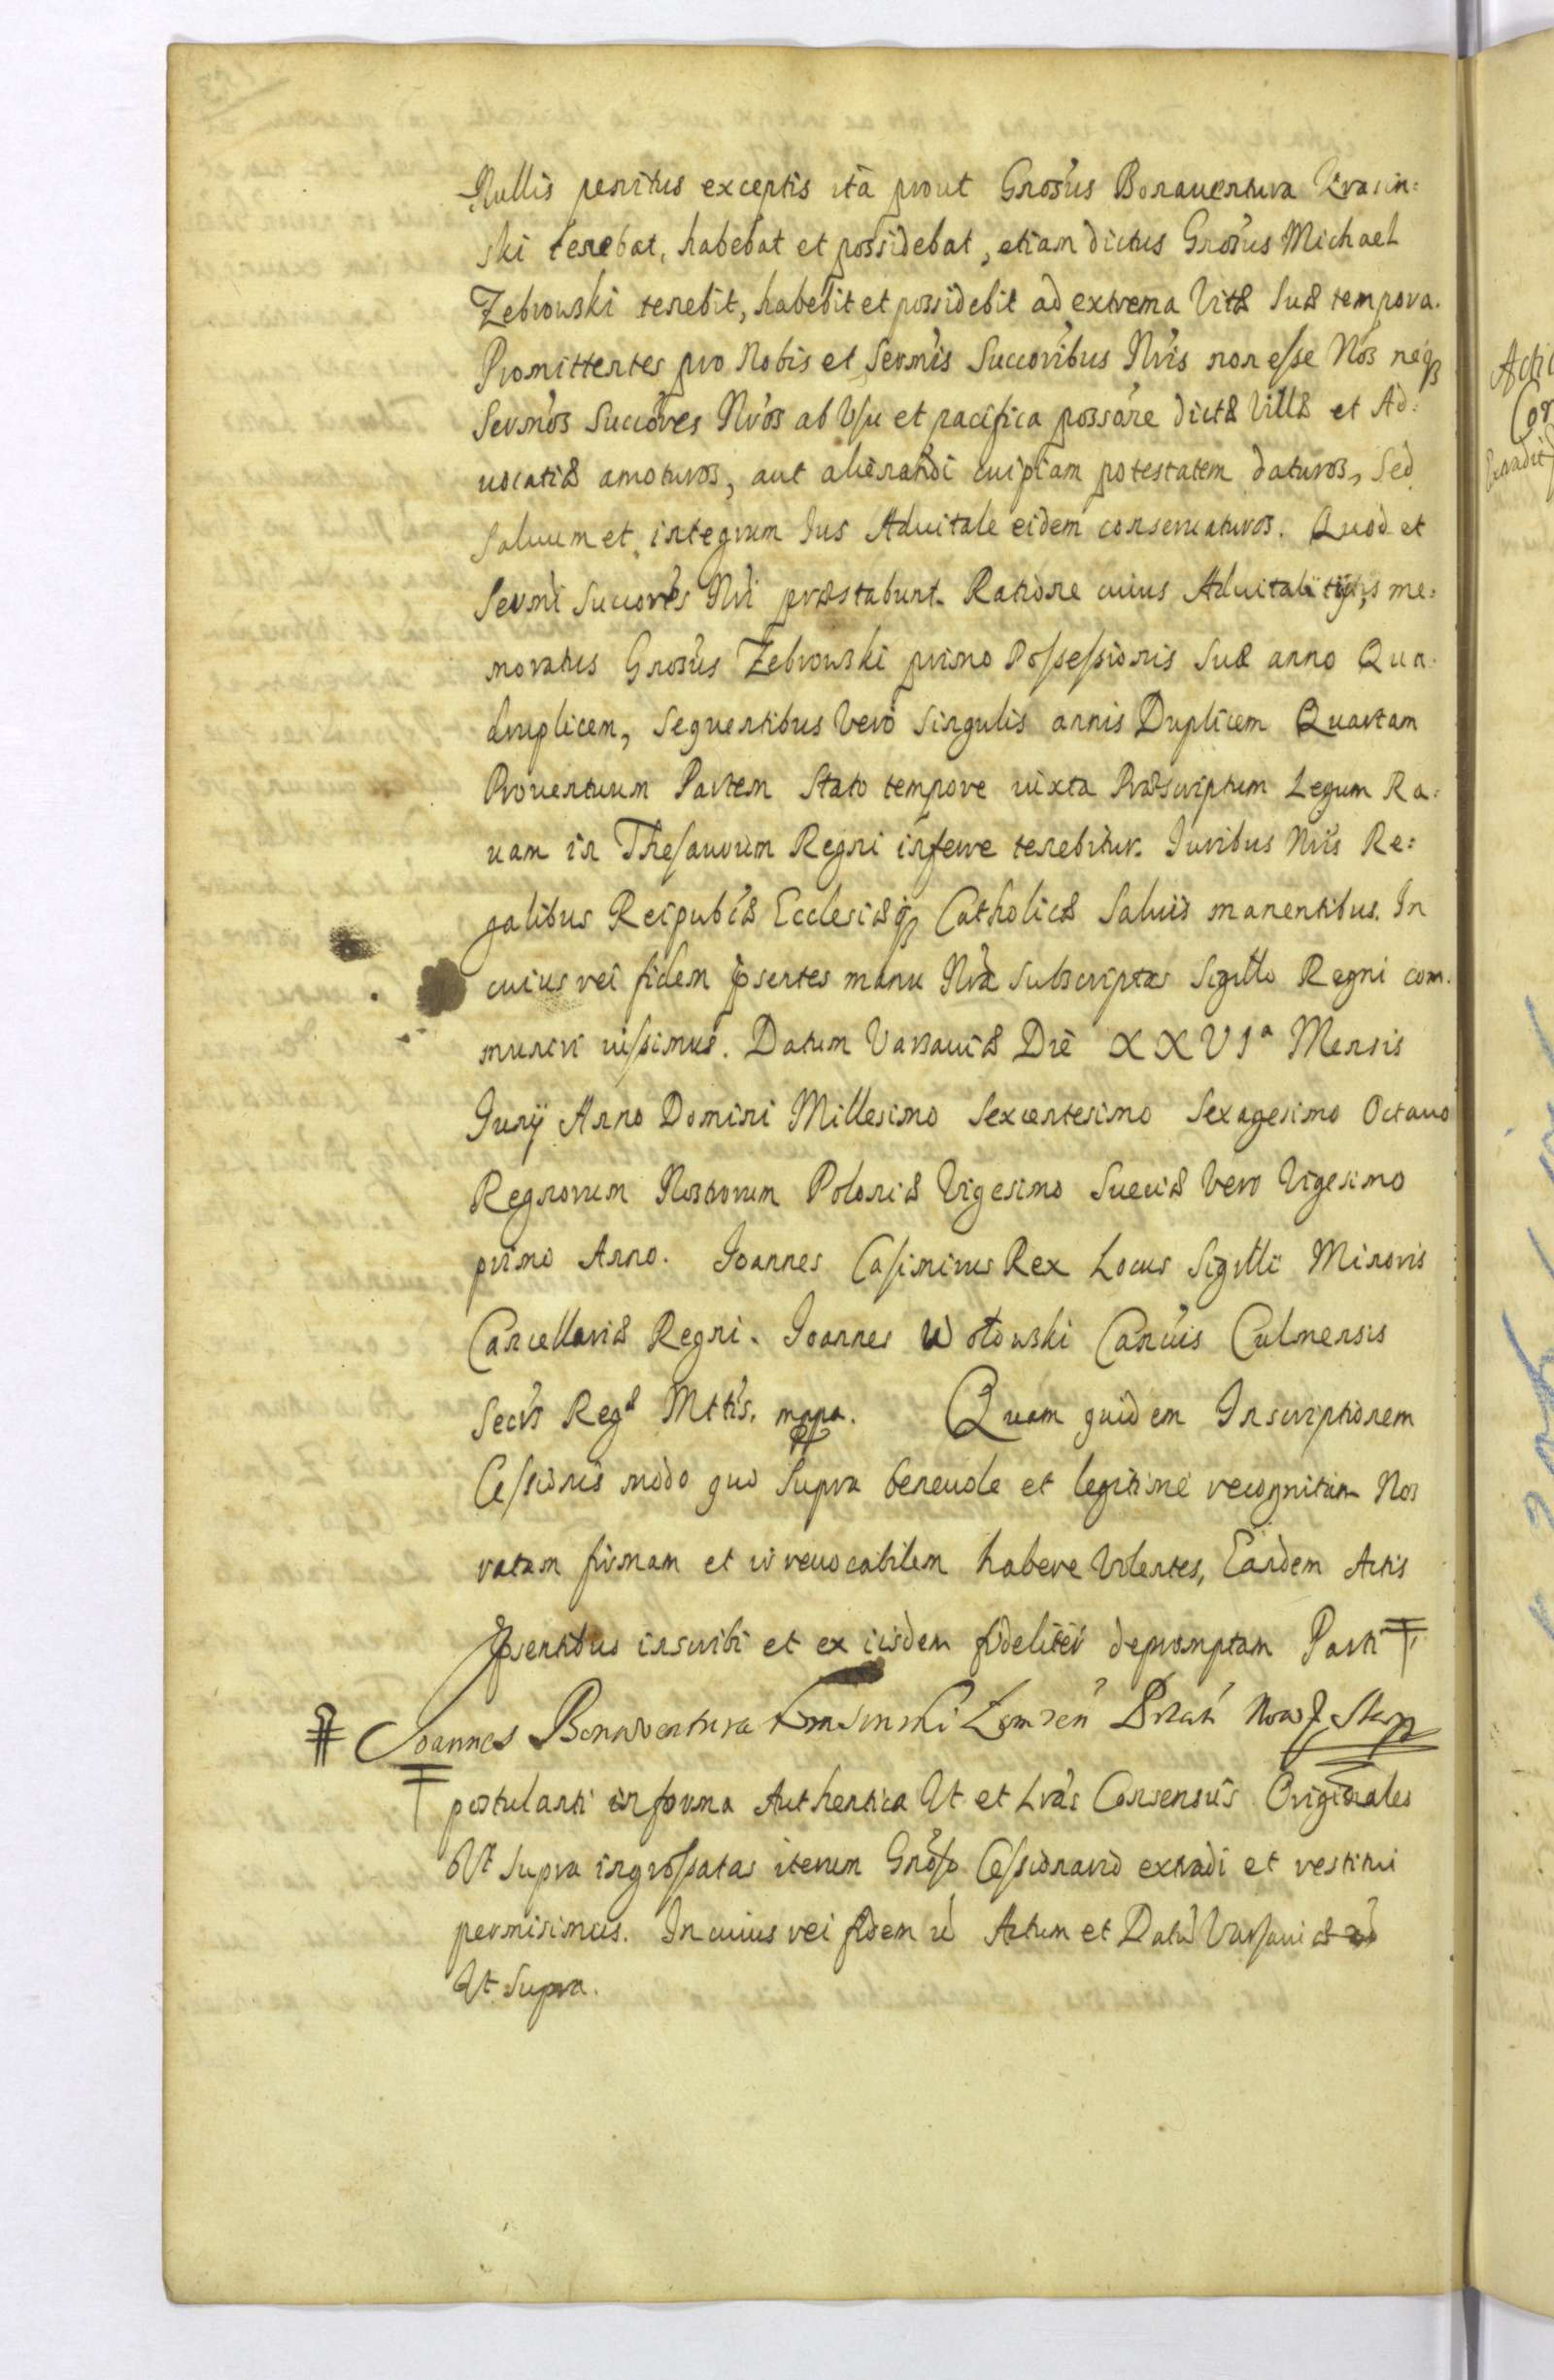 Nullis penitus exceptis ita prout Gnosus Bonauentura Krasin:
ski tenebat, habebat et possidebat, etiam dictus Gnosus Michael
Zebrowski tenebit, habebit et possidebit ad extrema Vitæ suæ tempora.
Promittentes pro Nobis et Sermis Succoribus Nris non esse Nos neqz
Sermos Succores Nros ab Usu et pacifica possone dictæ Villæ et Ad:
uocatiæ amoturos, aut alienandi cuipiam potestatem daturos, Sed
Saluum et integrum Ius Aduitale eidem conseruaturos. Quod et
Sermi Succores Nri præstabunt. Ratione cuius Aduitalitatis me:
moratus Gnosus Zebrowski primo Possessionis suæ anno Qua:
druplicem, sequentibus Vero singulis annis Duplicem Quartam
Prouentuum Partem Stato tempore iuxta Præscriptum Legum Ra:
uam in Thesaurum Regni inferre tenebitur. Iuribus Nris Re:
galibus Reipubcæ Ecclesiæqz Catholicæ Saluis manentibus. In
cuius rei fidem pñsentes manu Nra subscriptas Sigillo Regni com:
muniri iussimus. Datum Varsauiæ Die XXVIa Mensis
Iunij Anno Domini Millesimo Sexcentesimo Sexagesimo Octauo
Regnorum Nostrorum Poloniæ Vigesimo Sueciæ Vero Vigesimo
primo Anno. Ioannes Casimirus Rex Locus Sigilli Minoris
Cancellariæ Regni. Ioannes Wołowski Cancus Culmensis
Secrs Regæ Mttis. mppa. Quam quidem Inscriptionem
Cessionis modo quo supra beneuole et legitime recognitam Nos
ratam firmam et irreuocabilem habere Volentes, Eandem Actis
Pñsentibus inscribi et ex iisdem fideliter depromptam Parti
Joannes Bonawentura Krasinski
postulanti in forma Authentica Ut et Lras Consensus Originales
Ut supra ingrossatas iterum Gnoso Cessionario extradi et restitui
permisimus. In cuius rei fidem Actum et Datu Varsauiæ
Ut Supra.
Acti